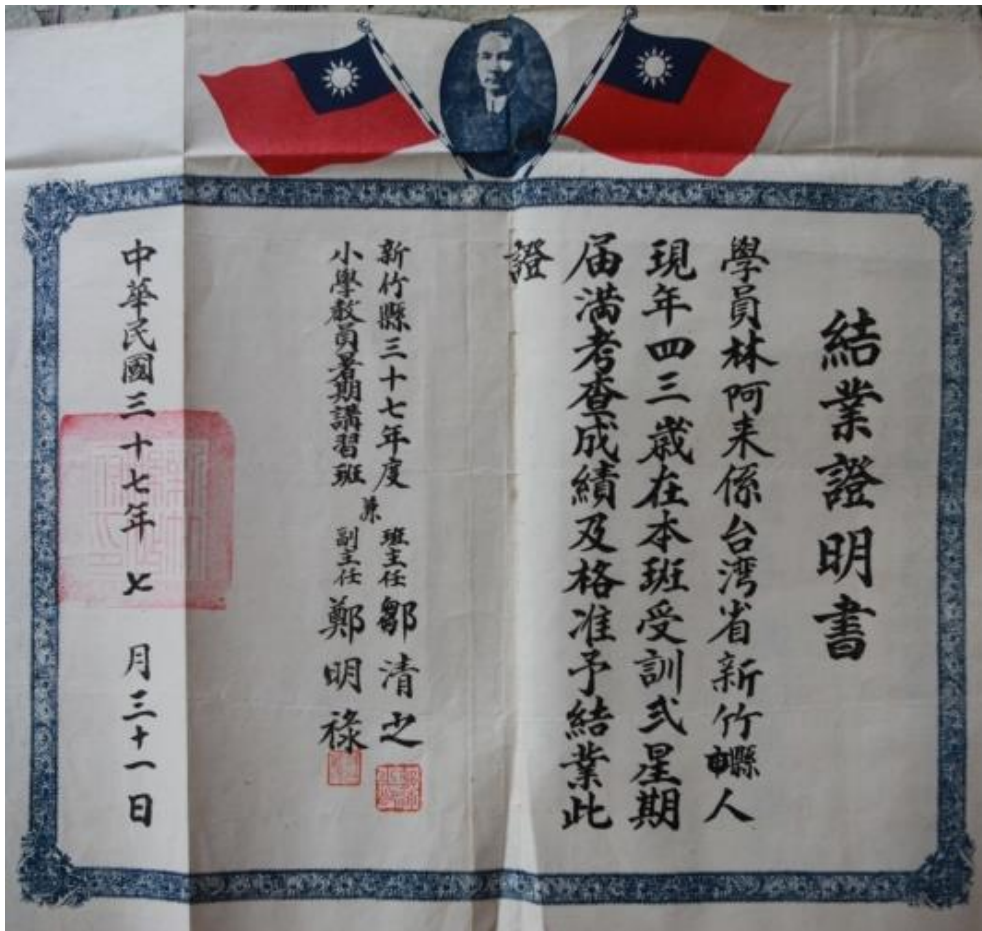 結業證明書
學員林阿来係台湾省新竹縣人
現年四三歲在本班受訓弍星期
届满考查成績及格准予結業此
證
新竹縣三十七年度
小學教員暑期講習班
兼
班主任鄒清之
副主任鄭明祿
中華民國三十七年七月三十一日